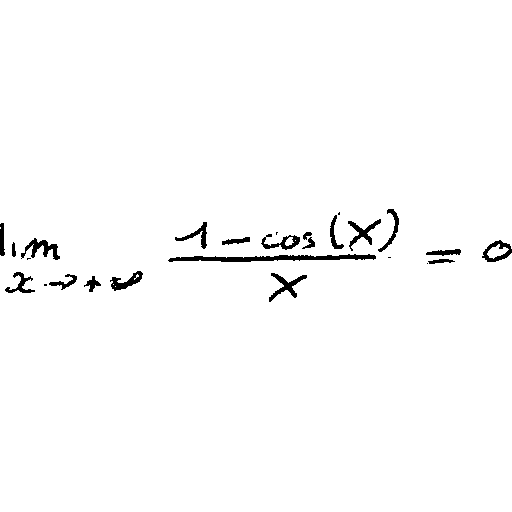 lim_{x→+∞} \frac{1-cos(x)}{x} = 0